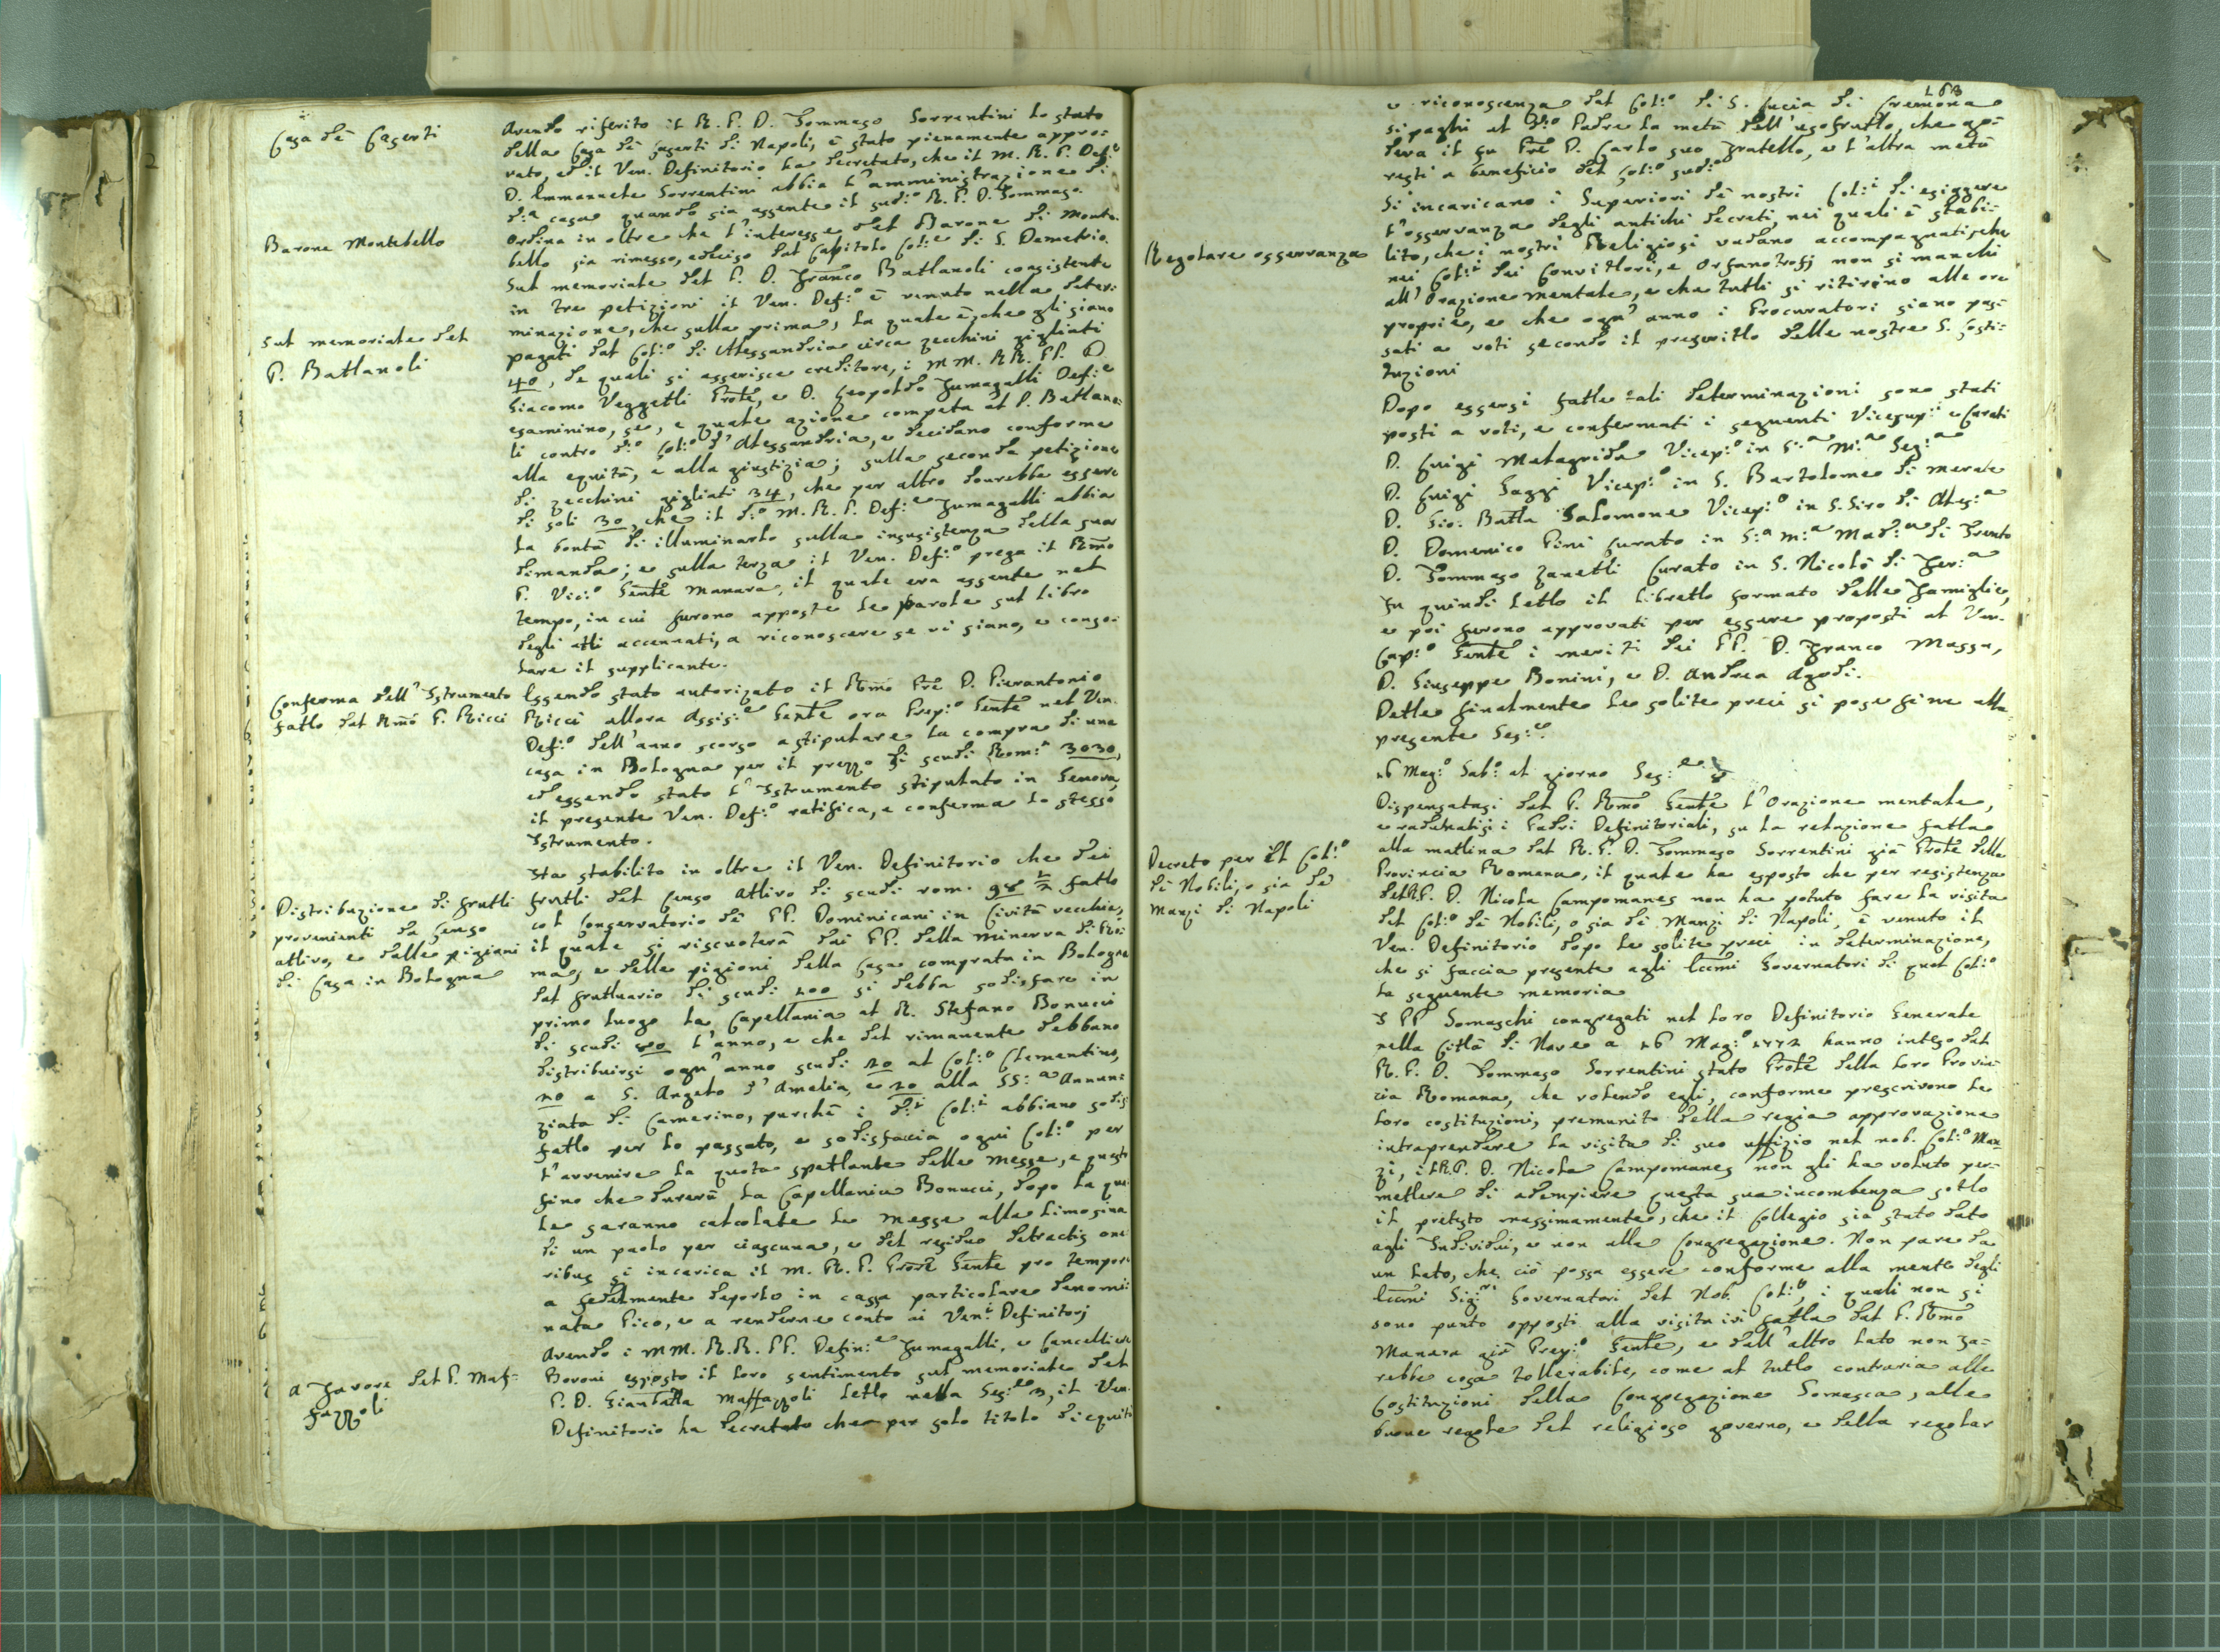 Casa dè Caserti
Avendo riferito il R. P. D. Tommaso Sorrentini lo stato
della Casa dè Caserti di Napoli, è stato pienamente appro:
vato, ed il Ven. Definitorio ha decretato, che il M. R. P. Def:e
D. Emmanuele Sorrentini abbia l'amministrazione di
d:a casa quando sia assente il sud:o R. P. D. Tommaso.
Barone Montebello
Ordina in oltre che l'interesse del Barone di Monte.
bello sia rimesso, e deciso dal Capitolo Col:e di S. Demetrio.
Sul memoriale del
P. Batlanoli
Sul memoriale del P. D. Franco Batlanoli consistente
in tre petizioni il Ven. Def:o è venuto nella deter:
minazione, che sulla prima, la quale è, che gli siano
pagati dal Col:o di Alessandria circa zecchini gigliati
40, de quali si asserisce creditore, i MM. RR. PP. D.
Giacomo Vezzetli Prōle, e D. Leopoldo Fumagalli Def:e
esaminino, se, e quale azione competa al P. Batlano:
li contro d:o Col:o d'Alessandria, e decidano conforme
alla equità, e alla giustizia; sulla seconda petizione
di zecchini gigliati 34, che per altro dourebbe essere
di soli 30, che il d:o M. R. P. Def:e Fumagalli abbia
la bontà di illuminarlo sulla insussistenza della sua
dimanda; e sulla terza il Ven. Def:o prega il Rm̄o
P. Vic:o Gēnle Manara, il quale era assente nel
tempo, in cui furono apposte le parole sul libro
degli atti accennati, a riconoscere se vi siano, e conso:
lare il supplicante.
Conferma dell'Istrumento
fatto dal Rm̄o P. Ricci
Essendo stato autorizato il Rm̄o Prē D. Pierantonio
Ricci allora Assis:e Gēnle ora Prep:o Gēnle nel Ven.
Def:o dell'anno scorso a stipulare la compra di una
casa in Bologna per il prezzo di scudi Rom:i 3030,
ed essendo stato l'Istrumento stipulato in Genova,
il presente Ven. Def:o ratifica, e conferma lo stesso
Istrumento.
Distribuzione di frutti
provenienti da Censo
attivo, e dalle pigioni
di Casa in Bologna
Ha stabilito in oltre il Ven. Definitorio che dei
frutti del Censo attivo di scudi rom. 98 1/2 fatto
col Conservatorio dè PP. Domenicani in Cività vecchia,
il quale si riscuoterà dai PP. della Minerva di Ro:
ma, e delle pigioni della Casa comprata in Bologna
dal fruttuario di scudi 100 si debba sodisfare in
primo luogo la Capellania al R. Stefano Bonucci
di scudi 80 l'anno, e che del rimanente debbano
distribuirsi ogn'anno scudi 20 al Col:o Clementino,
20 a S. Angelo d'Amelia, e 20 alla SS:a Annun:
ziata di Camerino, purchè i d:i Col:i abbiano sodis
fatto per lo passato, e sodisfaccia ogni Col:o per
l'avvenire la quota spettante delle Messe, e questo
fino che durerà la Capellania Bonucci, dopo la qua
le saranno calcolate le Messe alla limosina
di un paolo per ciascuna, e del residuo detractis one
ribus si incarica il M. R. P. Prōre Gēnle pro tempore
a fedelmente deporlo in cassa particolare denomi:
nata Pico, e a renderne conto ai Ven:i Definitorj
A favore del P. Maf:
fazzoli
Avendo i MM. R. R. PP. Defin:e Fumagalli, e Cancelliere
Bovoni esposto il loro sentimento sul memoriale del
P. D. Gianbatta Maffazzoli letto nella Ses:e 3, il Ven.
Definitorio ha decretato che per solo titolo di equità
163
e riconoscenza dal Col:o di S. Lucia di Cremona
si paghi al d:o Padre la metà dell'usofrutto, che go:
deva il fu Prē D. Carlo suo fratello, e l'altra metà
resti a beneficio del Col:o sud:o
Regolare osservanza
Si incaricano i Superiori dè nostri Col:i di esiggere
l'osservanza degli antichi decreti, nei quali è stabi:
lito, che i nostri Religiosi vadano accompagnati, che
nei Col:i dei Convittori, e Orfanotrofj non si manchi
all'Orazione mentale, e che tutti si ritirino alle ore
proprie, e che ogn'anno i Procuratori siano pas:
sati a voti secondo il prescritto delle nostre S. Costi:
tuzioni
Dopo essersi fatte tali determinazioni sono stati
posti a voti, e confermati i seguenti Vicesup:i e Curati
D. Luigi Malagrida Vicep:o in S:a M:a Seg:a
D. Luigi Saggi Vicep:o in S. Bartolomeo di Merate
D. Gio: Batta Salomone Vicep:o in S. Siro di Ales:a
D. Domenico Pini Curato in S:a M:a Mad:a di Trento
D. Tommaso Zanetti Curato in S. Nicolò di Fer:a
Fu quindi letto il libretto formato delle Famiglie,
e poi furono approvati per essere proposti al Ven.
Cap:o Gēnle i meriti dei PP. D. Franco Massa,
D. Giuseppe Bonini, e D. Andrea Agodi.
Dette finalmente le solite preci si pose fine alla
presente Ses:e.
16 Mag:o Sab:o al giorno Ses:e 8
Dispensatasi dal P. Rm̄o Gēnle l'Orazione mentale,
e radunatisi i Padri Definitoriali, su la relazione fatta
alla mattina dal R. P. D. Tommaso Sorrentini già Prōle della
Provincia Romana, il quale ha esposto che per resistenza
Decreto per il Col:o
dè Nobili, o sia de
Manzi di Napoli
del R. P. D. Nicola Campomanes non ha potuto fare la visita
del Col:o dè Nobili, o sia de Manzi di Napoli, è venuto il
Ven. Definitorio dopo le solite preci in determinazione,
che si faccia presente agli Eccm̄i Governatori di quel Col:o
la seguente memoria
I PP. Somaschi congregati nel loro Definitorio Generale
nella Città di Nove a 16 Mag:o 1772 hanno inteso dal
R. P. D. Tommaso Sorrentini stato Prōle della loro Provin:
cia Romana, che volendo egli, conforme prescrivono le
loro costituzioni, premunito della regia approvazione
intraprendere la visita di suo uffizio nel nob. Col:o Man
zi, il R. P. D. Nicola Campomanes non gli ha voluto per:
mettere di adempiere questa sua incombenza sotto
il pretesto massimamente, che il Collegio sia stato dato
agli Individui, e non alla Congregazione. Non pare da
un lato, che ciò possa essere conforme alla mente degli
Eccm̄i Sig:ri Governatori del Nob. Col:o, i quali non si
sono punto opposti alla visita ivi fatta dal P. Rm̄o
Manara già Prep:o Gēnle, e dall'altro lato non sa:
rebbe cosa tollerabile, come al tutto contraria alle
Costituzioni della Congregazione Somasca, alle
buone regole del religioso governo, e della regolar